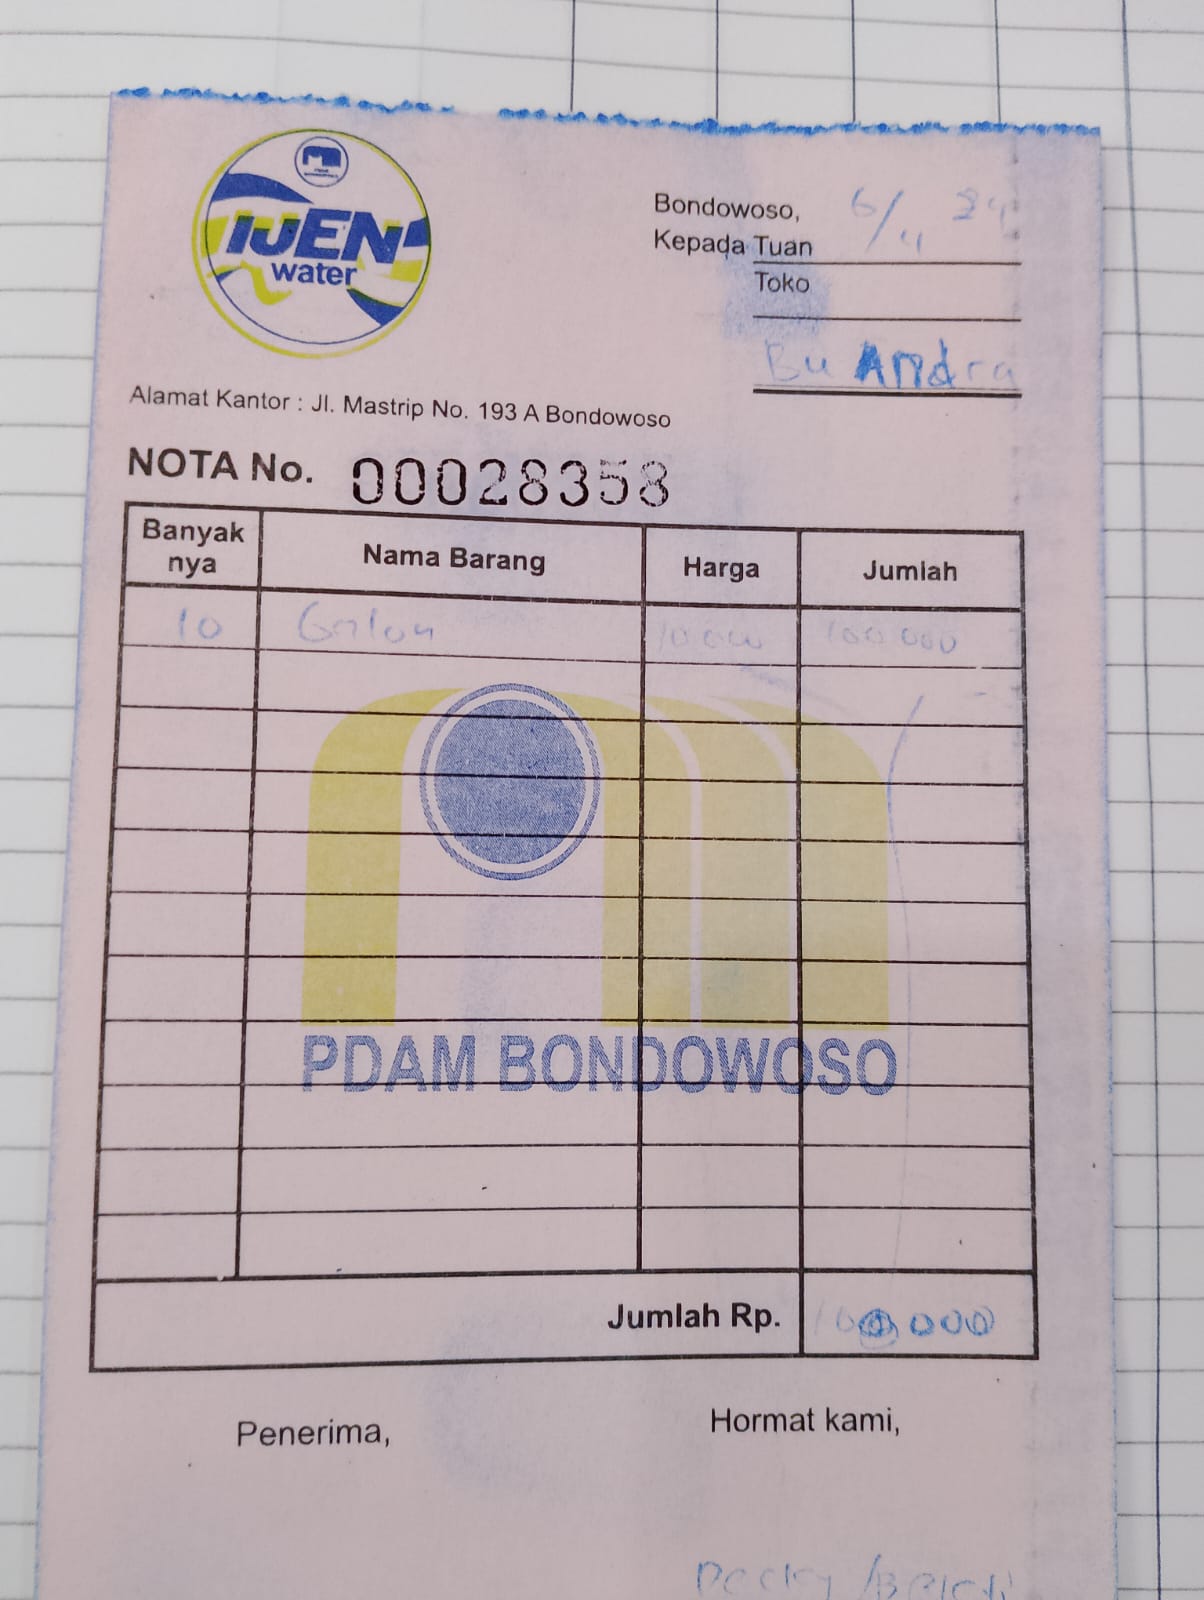 IJEN
water
Bondowoso, 6/4 24
Kepada Tuan
Toko
Bu Andra
Alamat Kantor : Jl. Mastrip No. 193 A Bondowoso
NOTA No. 00028358
Banyak nya Nama Barang Harga Jumlah
10 Galon 10.000 100 000
PDAM BONDOWOSO
Jumlah Rp. 100 000
Penerima, Hormat kami,